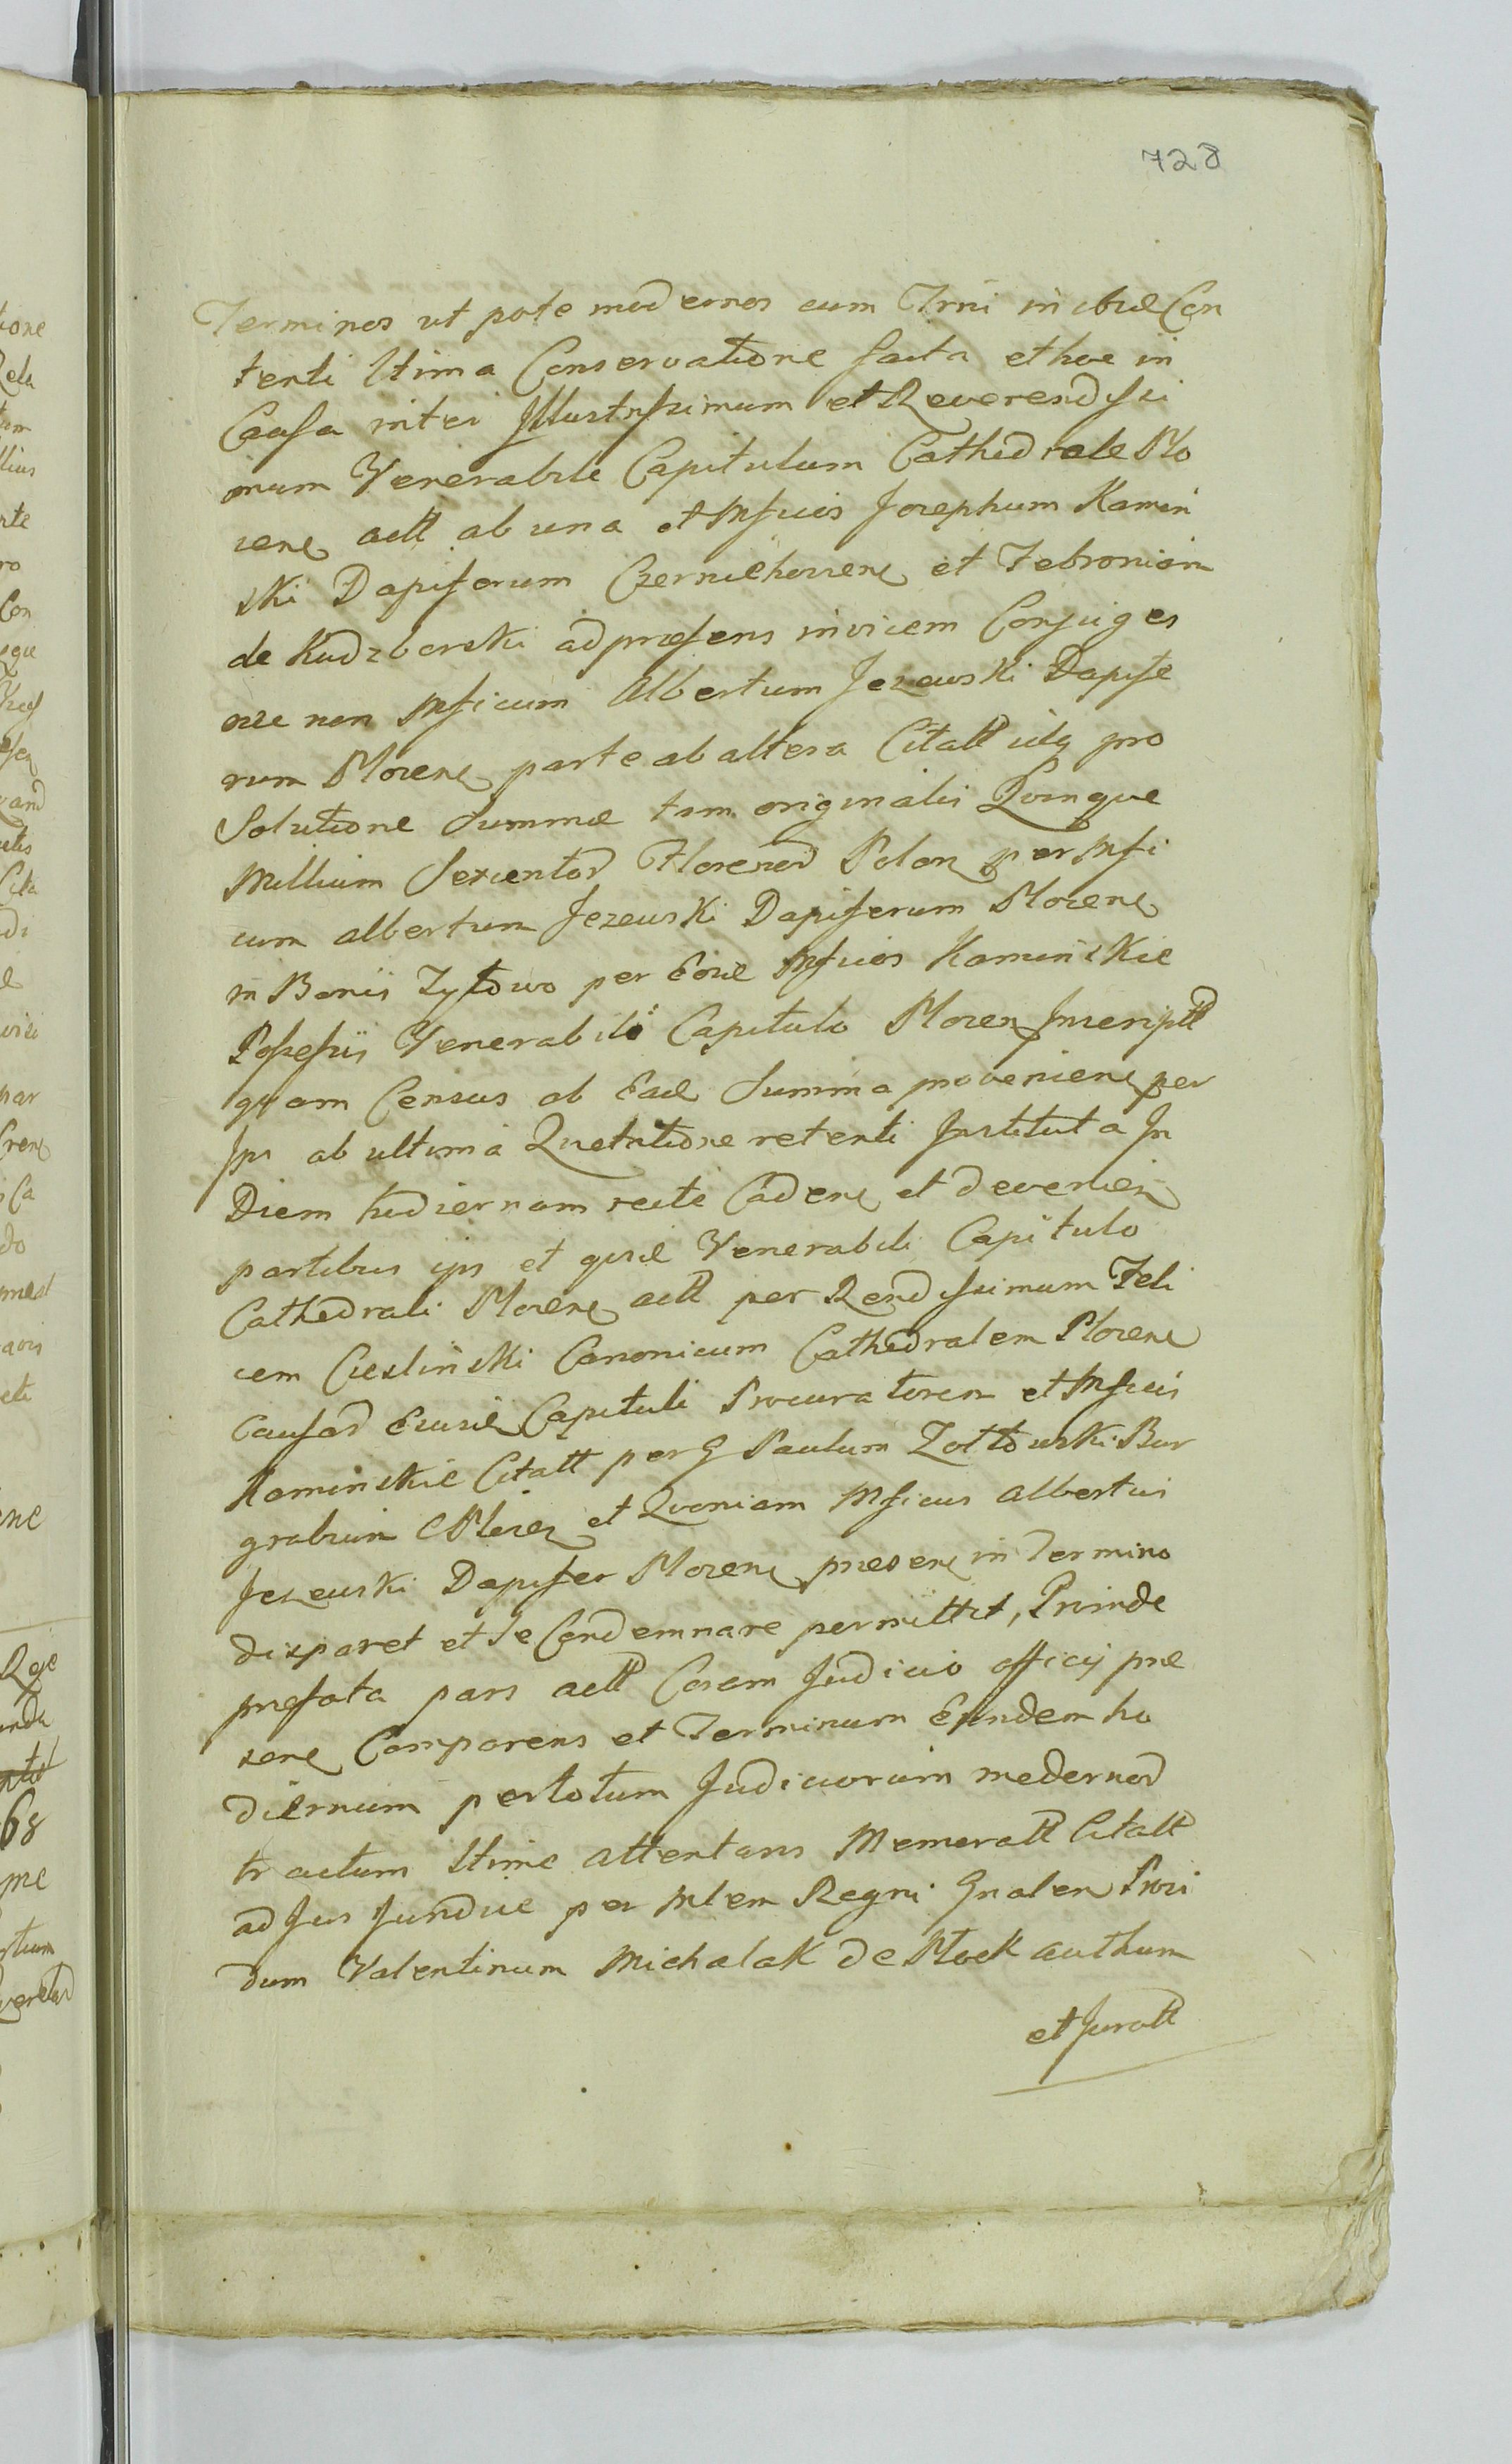 728
Terminos ut pote modernos cum Trni in ibide Con
tenti ltima Conservatione facta et hoc in
Causa inter Illustrissimum et Reverendissi
mum Venerabile Capitulum Cathedrale Plo
cen actt ab una et Mficos Josephum Kamin
ski Dapiferum Czerniehoviens et Febroniam
de Kudzborski ad præsens invicem Conjuges
nec non Mficum Albertum Jezewski Dapife
rum Plocens parte ab altera Citatt idq pro
Solutione Summæ tam originalis Quinque
Millium Sexcentor Florenor Polon per Mfi
cum Albertum Jezewski Dapiferum Plocens
in Bonis Zytowo per Eosde Mficos Kaminskie
Possessis Venerabili Capitulo Plocen Inscriptt
quam Census ab Eade Summa proveniens per
Ipsi ab ultima Quetatione retenti Instituta In
Diem hodiernam recte Cadens et devenien
partibus ips et quide Venerabili Capitulo
Cathedrali Plocens actt per Rendissimum Feli
cem Cieslinski Canonicum Cathedralem Plocens
Causar Eiusde Capituli Procuratorem et Mficis
Kaminskie Citatt per G Paulum Zoltowski Bur
grabium Plocen et Quoniam Mficus Albertus
Jezewski Dapifer Plocens præsens in Termino
disparet et se Condemnare permittit, Proinde
præfata pars actt Coram Judicio officy præ
sens Comparens et Terminum Eundem ho
diernum per totum Judiciorum modernor
tractum ltime attentans Memoratt Citatt
ad Jus Jundice per Mlem Regni Gnalem Provi
dum Valentinum Michalak de Plock authum
et Juratt